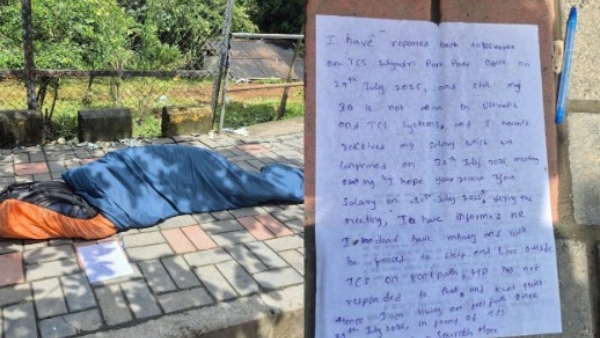 I have reported back to
on TCS Sahyadri Park Pune Office on
29th July 2025, and still my
ID is not active in Ultimatix
and TCS systems, and I haven't
received my salary which was
confirmed on 30th July 2025 meeting
I hope you receive your
Salary on 31st July 2025, during the
meeting, I have informed HR
I have money and will
be forced to sleep and live outside
TCS on footpath, HR has not
responded to that and kept quiet
Hence I am living on footpath since
29th July 2025, in front of TCS
Saurabh More